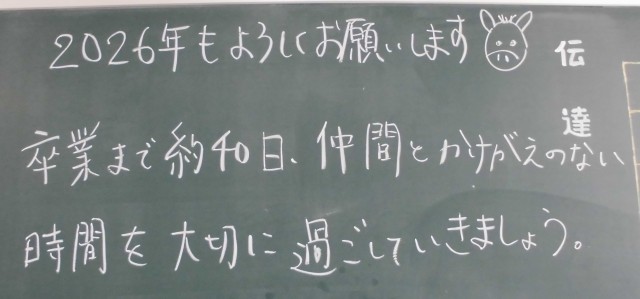 2026年もよろしくお願いします
伝達
卒業まで約40日、仲間とかけがえのない
時間を大切に過ごしていきましょう。